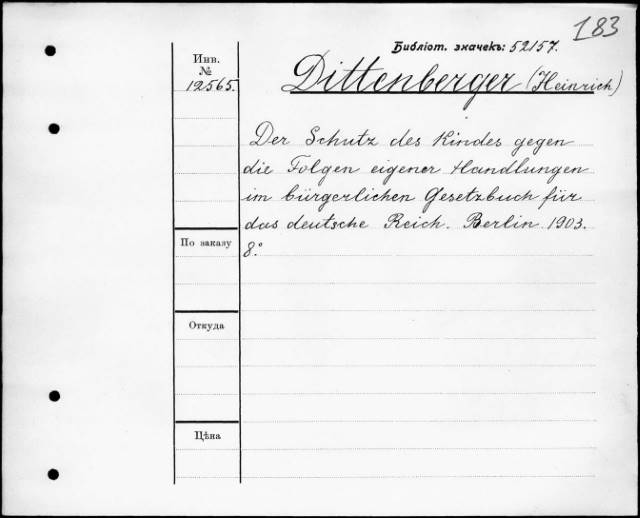 183
Библіот. значекъ: 52157.
Инв.
№
12565.
Dittenberger (Heinrich)
Der Schutz des Kindes gegen
die Folgen eigener Handlungen
im bürgerlichen Gesetzbuch für
das deutsche Reich. Berlin 1903.
8.°
По заказу
Откуда
Цѣна